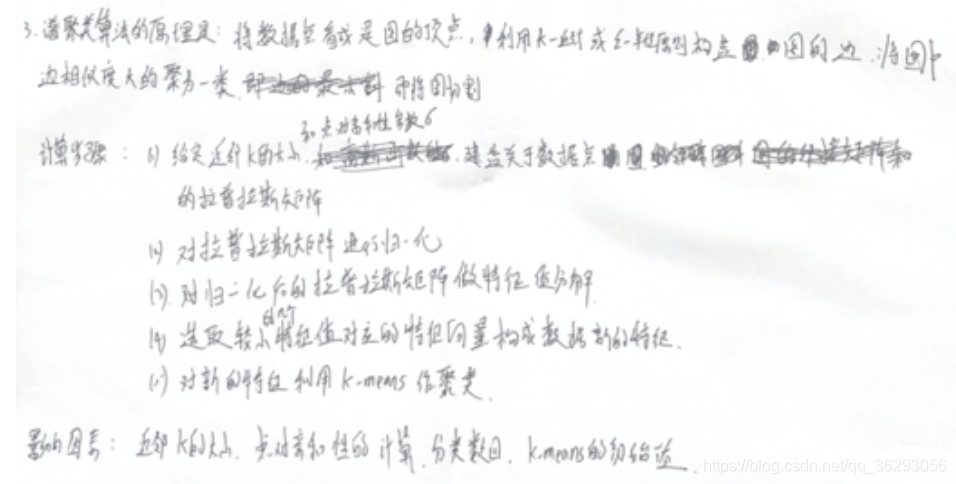 3.谱聚类算法的原理是：将数据点看成是图的顶点，利用k-近邻或ε-邻近原则构造图的边，将图中
边相似度大的聚为一类，即将图分割
和点对亲和性参数σ
计算步骤：(1) 给定近邻k的大小，建立关于数据点图
的拉普拉斯矩阵
(2) 对拉普拉斯矩阵进行归一化
(3) 对归一化后的拉普拉斯矩阵做特征值分解
的前
(4) 选取较小特征值对应的特征向量构成数据新的特征.
(5) 对新的特征利用k-means作聚类.
影响因素：近邻k的大小、点对亲和性的计算、分类数目、k-means的初始
https://blog.csdn.net/qq_36293056